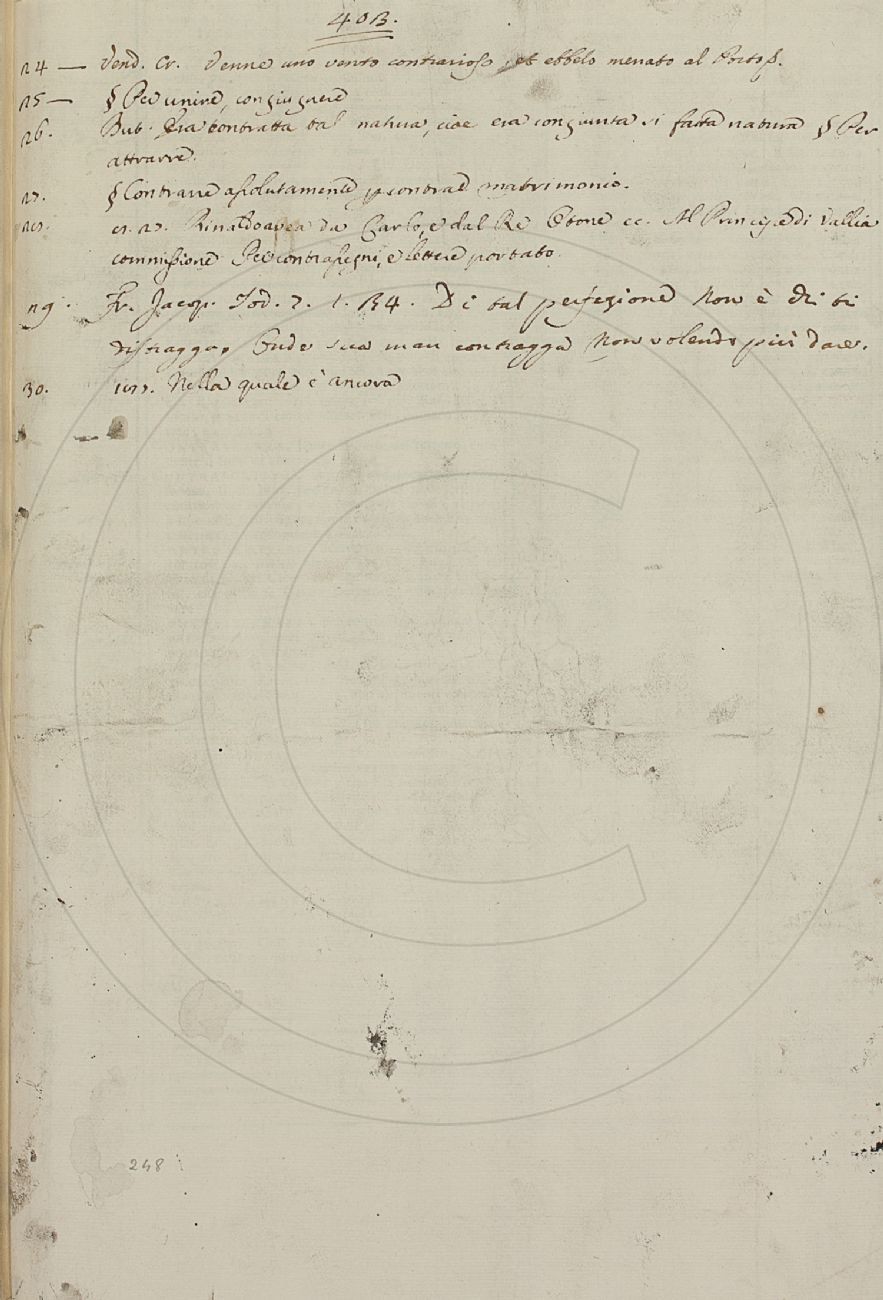 403.
24 — Vend. Cr. Venne uno vento contrarioso, et ebbelo menato al Porto
25 — § Per unire, congiugnere
26. But. Era contratta tal natura, cioè era congiunta sì fatta natura § Per
attrarre.
27. § Contrarre assolutamente p contrar matrimonio.
28. Rinaldo avea da Carlo, e dal Re Otone ec. Al Principe di Vallia
commissione Per contrassegni, e lettere portato.
29. Fr. Jacop. Tod. 2. 1. 34. Di tal perfezione Non è chi ti
distragga, Onde sua man contragga Non volendo più dare.
30. Nella quale è ancora
248